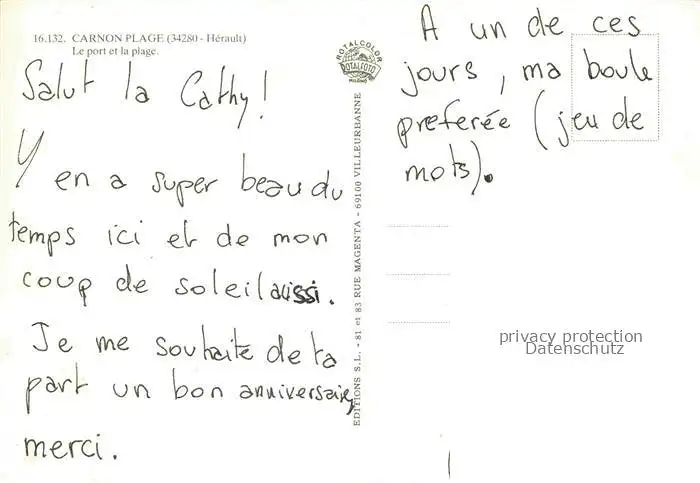 16.132. CARNON PLAGE (34280 - Hérault)
Le port et la plage.
Salut la Cathy!
Y en a super beau du
temps ici et de mon
coup de soleil aussi.
Je me souhaite de ta
part un bon anniversaire,
merci.
ROTALCOLOR
ROTALFOTO
MILANO
EDITIONS S.L. - 81 et 83 RUE MAGENTA - 69100 VILLEURBANNE
A un de ces
jours, ma boule
preferée (jeu de
mots).
privacy protection
Datenschutz